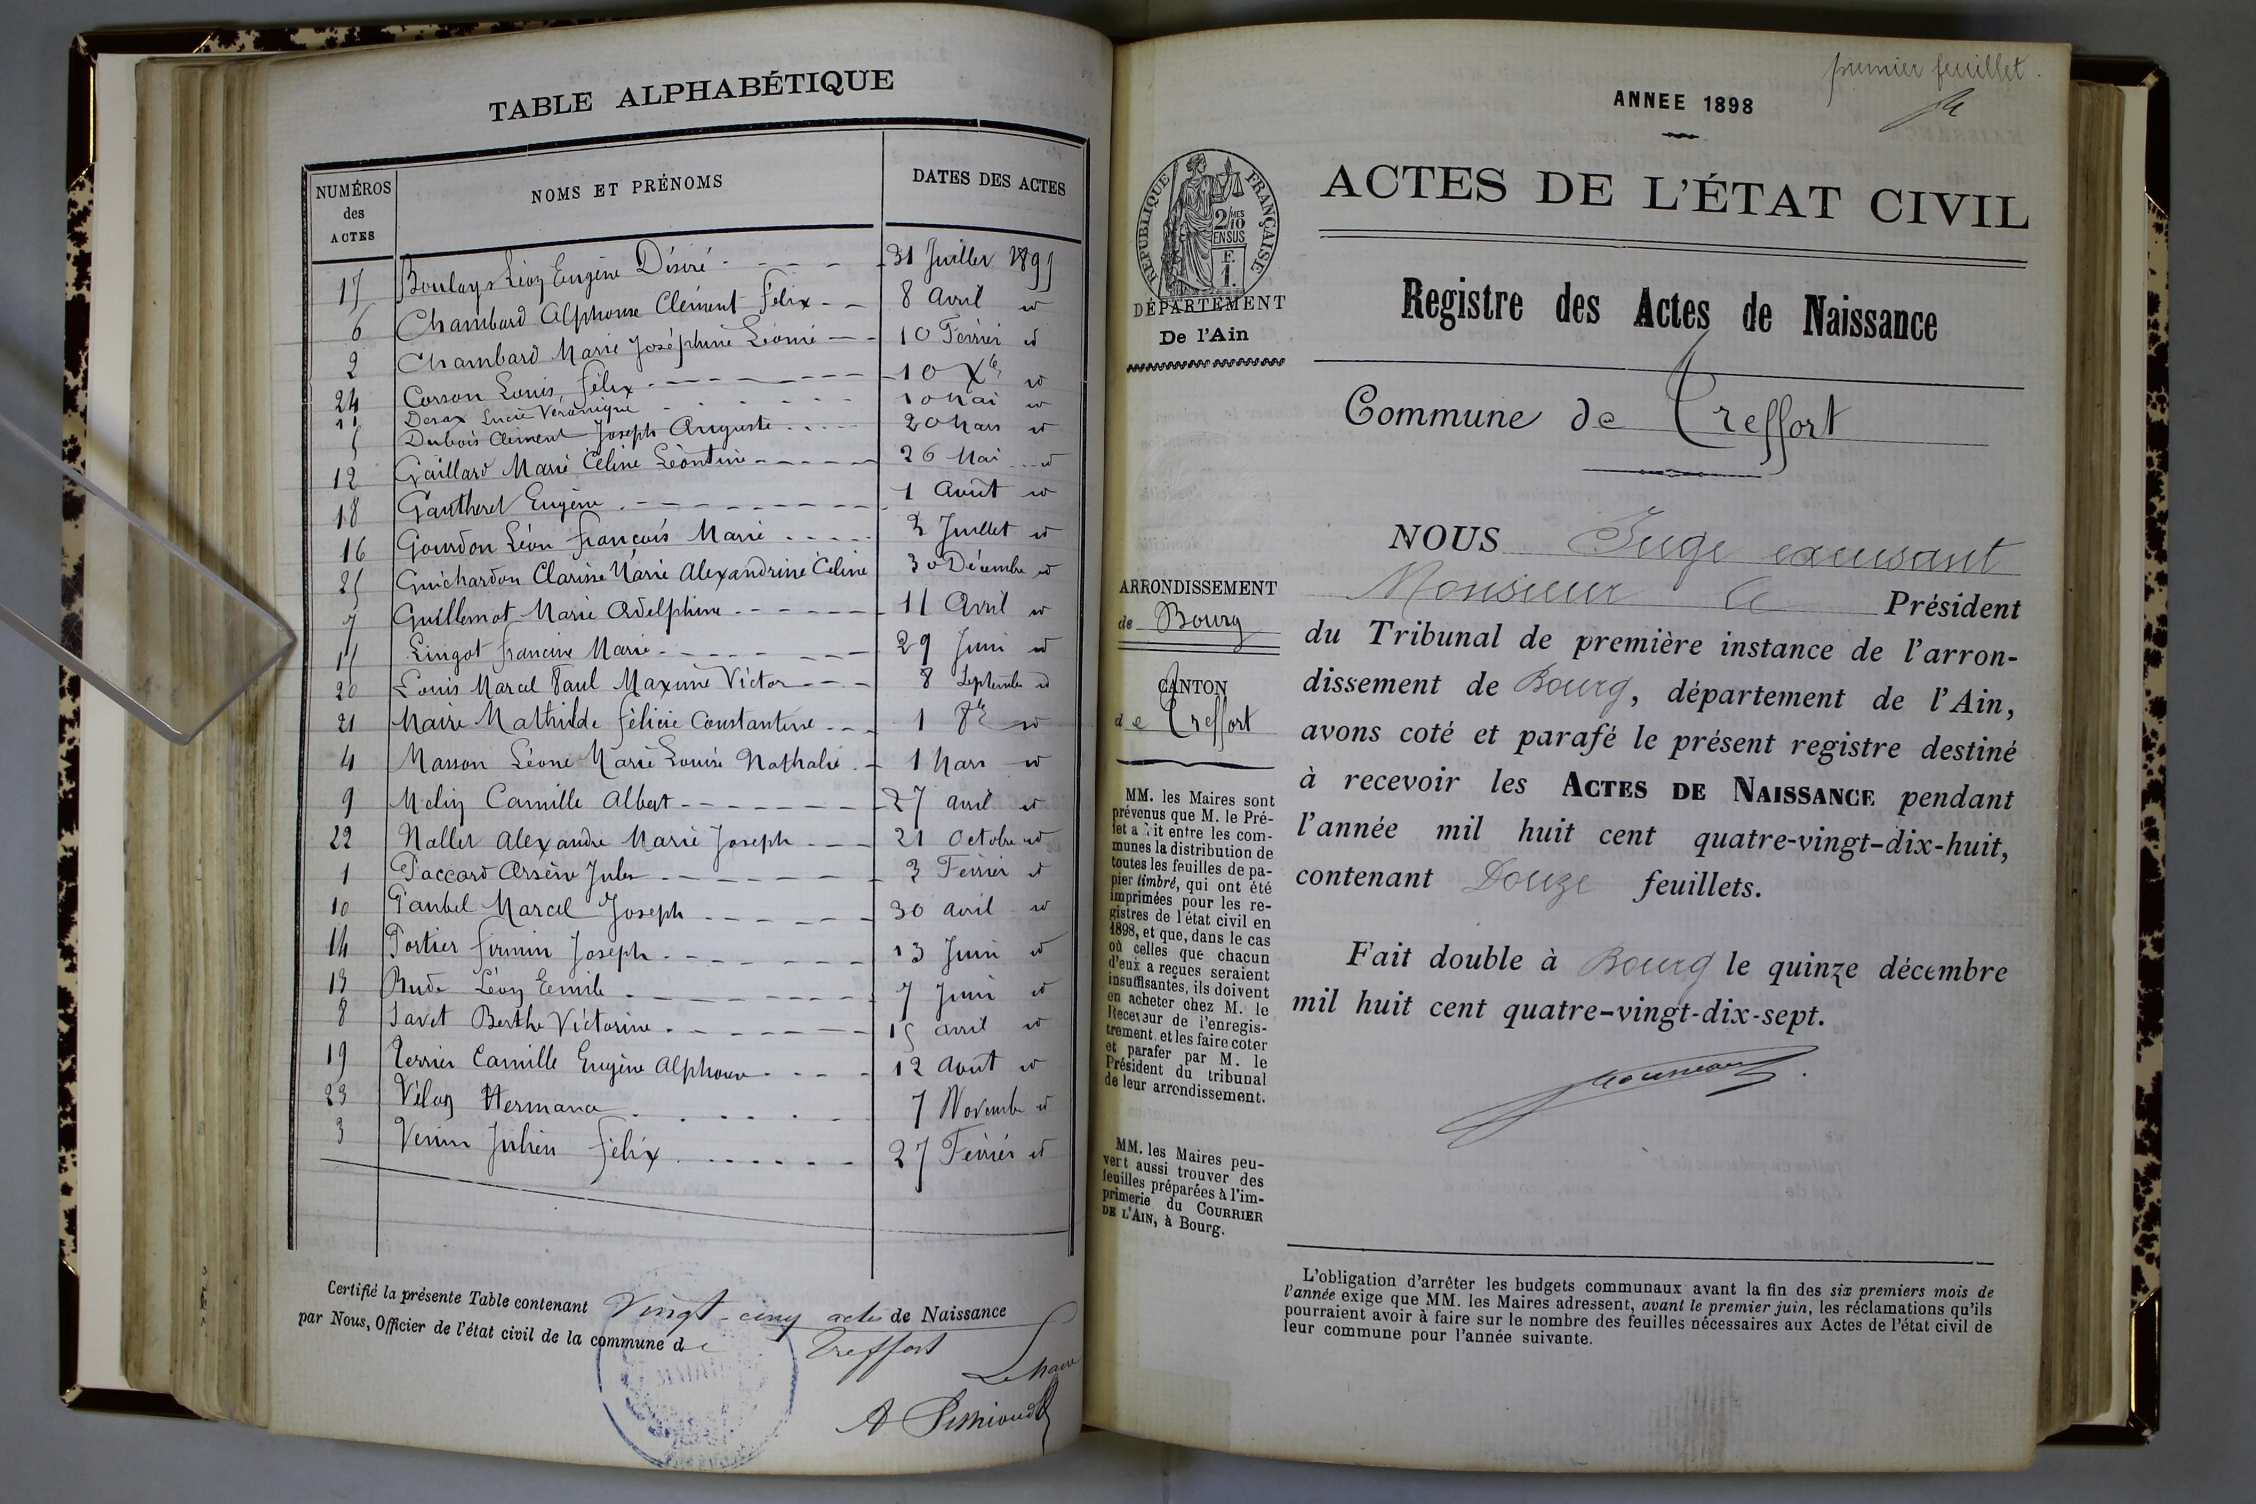 TABLE ALPHABÉTIQUE
NUMÉROS des ACTES NOMS ET PRÉNOMS DATES DES ACTES
17 Boulays Léon Eugène Désiré 31 Juillet 1897
6 Chambard Alphonse Clément Félix 8 Avril id
2 Chambard Marie Joséphine Léonie 10 Février id
24 Corson Louis, Félix 10 Xbre id
11 Desax Lucie Véronique 10 Mai id
5 Dubois Clément Joseph Auguste 20 Mars id
12 Gaillard Marie Céline Léontine 26 Mai id
18 Gautheret Eugène 1 Août id
16 Gourdon Léon François Marie 2 Juillet id
25 Guichardon Clarisse Marie Alexandrine Céline 30 Décembre id
7 Guillemot Marie Adelphine 11 Avril id
15 Lingot Francine Marie 29 Juin id
20 Louis Marcel Paul Maxime Victor 8 Septembre id
21 Maire Mathilde Félicie Constantine 1 8bre id
4 Masson Léone Marie Louise Nathalie 1 Mars id
9 Melin Camille Albert 27 avril id
22 Nallet Alexandre Marie Joseph 21 Octobre id
1 Paccard Arsène Jules 3 Février id
10 Paubel Marcel Joseph 30 avril id
14 Portier Firmin Joseph 13 Juin id
13 Rude Léon Emile 7 Juin id
8 Savet Berthe Victorine 15 avril id
19 Terrier Camille Eugène Alphonse 12 Août id
23 Vélon Hermana 7 Novembre id
3 Venin Julien Félix 27 Février id
Certifié la présente Table contenant Vingt-cinq actes de Naissance
par Nous, Officier de l'état civil de la commune de Treffort
Le Maire
MAIRIE
premier feuillet.
ANNEE 1898
RÉPUBLIQUE FRANÇAISE
2/10MES
EN SUS
F.
1.
DÉPARTEMENT
De l'Ain
ARRONDISSEMENT
de Bourg
CANTON
de Treffort
MM. les Maires sont
prévenus que M. le Pré-
fet a fait entre les com-
munes la distribution de
toutes les feuilles de pa-
pier timbré, qui ont été
imprimées pour les re-
gistres de l'état civil en
1898, et que, dans le cas
où celles que chacun
d'eux a reçues seraient
insuffisantes, ils doivent
en acheter chez M. le
Receveur de l'enregis-
trement, et les faire coter
et parafer par M. le
Président du tribunal
de leur arrondissement.
MM. les Maires peu-
vent aussi trouver des
feuilles préparées à l'im-
primerie du COURRIER
DE L'AIN, à Bourg.
ACTES DE L'ÉTAT CIVIL
Registre des Actes de Naissance
Commune de Treffort
NOUS Juge excusant
Monsieur le Président
du Tribunal de première instance de l'arron-
dissement de Bourg, département de l'Ain,
avons coté et parafé le présent registre destiné
à recevoir les ACTES DE NAISSANCE pendant
l'année mil huit cent quatre-vingt-dix-huit,
contenant Douze feuillets.
Fait double à Bourg le quinze décembre
mil huit cent quatre-vingt-dix-sept.
L'obligation d'arrêter les budgets communaux avant la fin des six premiers mois de
l'année exige que MM. les Maires adressent, avant le premier juin, les réclamations qu'ils
pourraient avoir à faire sur le nombre des feuilles nécessaires aux Actes de l'état civil de
leur commune pour l'année suivante.